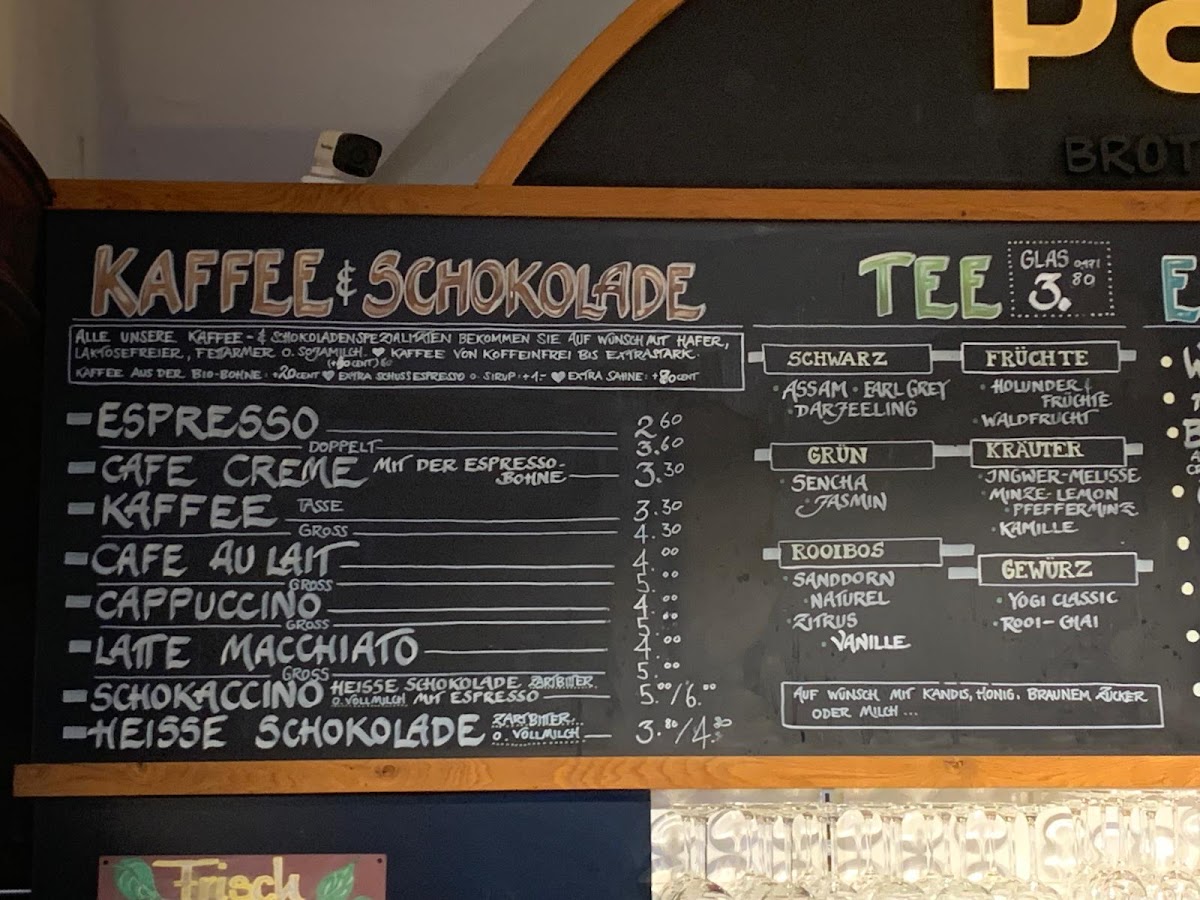 BROT
KAFFEE & SCHOKOLADE
ALLE UNSERE KAFFEE- & SCHOKOLADENSPEZIALITÄTEN BEKOMMEN SIE AUF WUNSCH MIT HAFER,
LAKTOSEFREIER, FETTARMER O. SOJAMILCH. ♥ KAFFEE VON KOFFEINFREI BIS EXTRASTARK.
KAFFEE AUS DER BIO-BOHNE: +20CENT ♥ EXTRA SCHUSS ESPRESSO O. SIRUP: +1.- ♥ EXTRA SAHNE: +80CENT
ESPRESSO 2.60
DOPPELT 3.60
CAFE CREME MIT DER ESPRESSO-
BOHNE 3.30
KAFFEE TASSE 3.30
GROSS 4.30
CAFE AU LAIT 4.00
GROSS 5.00
CAPPUCCINO 4.00
GROSS 5.00
LATTE MACCHIATO 4.00
GROSS 5.00
SCHOKACCINO HEISSE SCHOKOLADE ZARTBITTER
O. VOLLMILCH MIT ESPRESSO 5.00/6.00
HEISSE SCHOKOLADE ZARTBITTER...
O. VOLLMILCH 3.80/4.80
TEE
GLAS 0,47l
3.80
SCHWARZ
• ASSAM • EARL GREY
• DARJEELING
GRÜN
• SENCHA
• JASMIN
ROOIBOS
• SANDDORN
• NATUREL
• ZITRUS
• VANILLE
FRÜCHTE
• HOLUNDER &
FRÜCHTE
• WALDFRUCHT
KRÄUTER
• INGWER-MELISSE
• MINZE-LEMON
• PFEFFERMINZ
• KAMILLE
GEWÜRZ
• YOGI CLASSIC
• ROOI-CHAI
AUF WUNSCH MIT KANDIS, HONIG, BRAUNEM ZUCKER
ODER MILCH...
Frisch